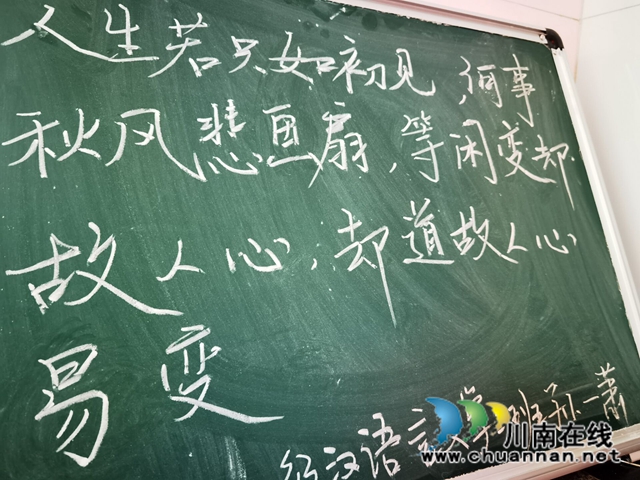 人生若只如初见,何事
秋风悲画扇,等闲变却
故人心,却道故人心
易变
汉语言文学 班孙一萧
川南在线
www.chuannan.net